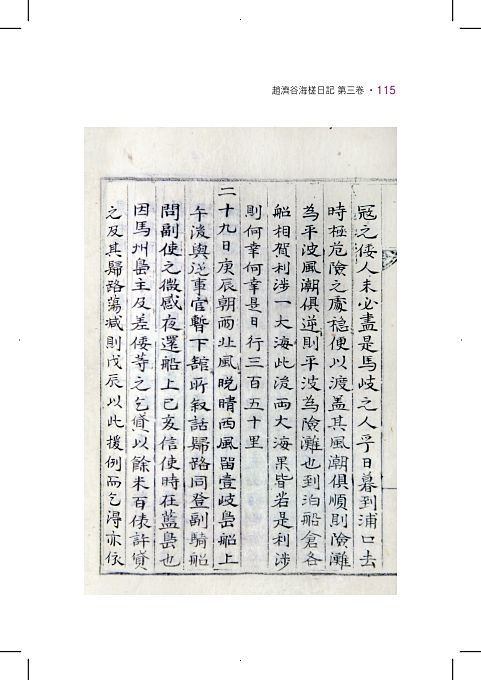 趙濟谷海槎日記 第三卷 • 115
冦之倭人未必盡是馬岐之人乎日暮到浦口去
時極危險之處穏便以渡盖其風潮俱順則險灘
為平波風潮俱逆則平波為險灘也到泊船倉各
船相賀利涉一大海此後兩大海果皆若是利涉
則何幸何幸是日行三百五十里
二十九日庚辰朝雨北風晩晴西風留壹岐島船上
午後與從事官暫下舘所叙話歸路同登副騎船
問副使之微感夜還船上已亥信使時在藍島也
因馬州島主及差倭等之乞貸以餘米百俵許貸
之及其歸路蕩减則戊辰以此援例而乞得亦依